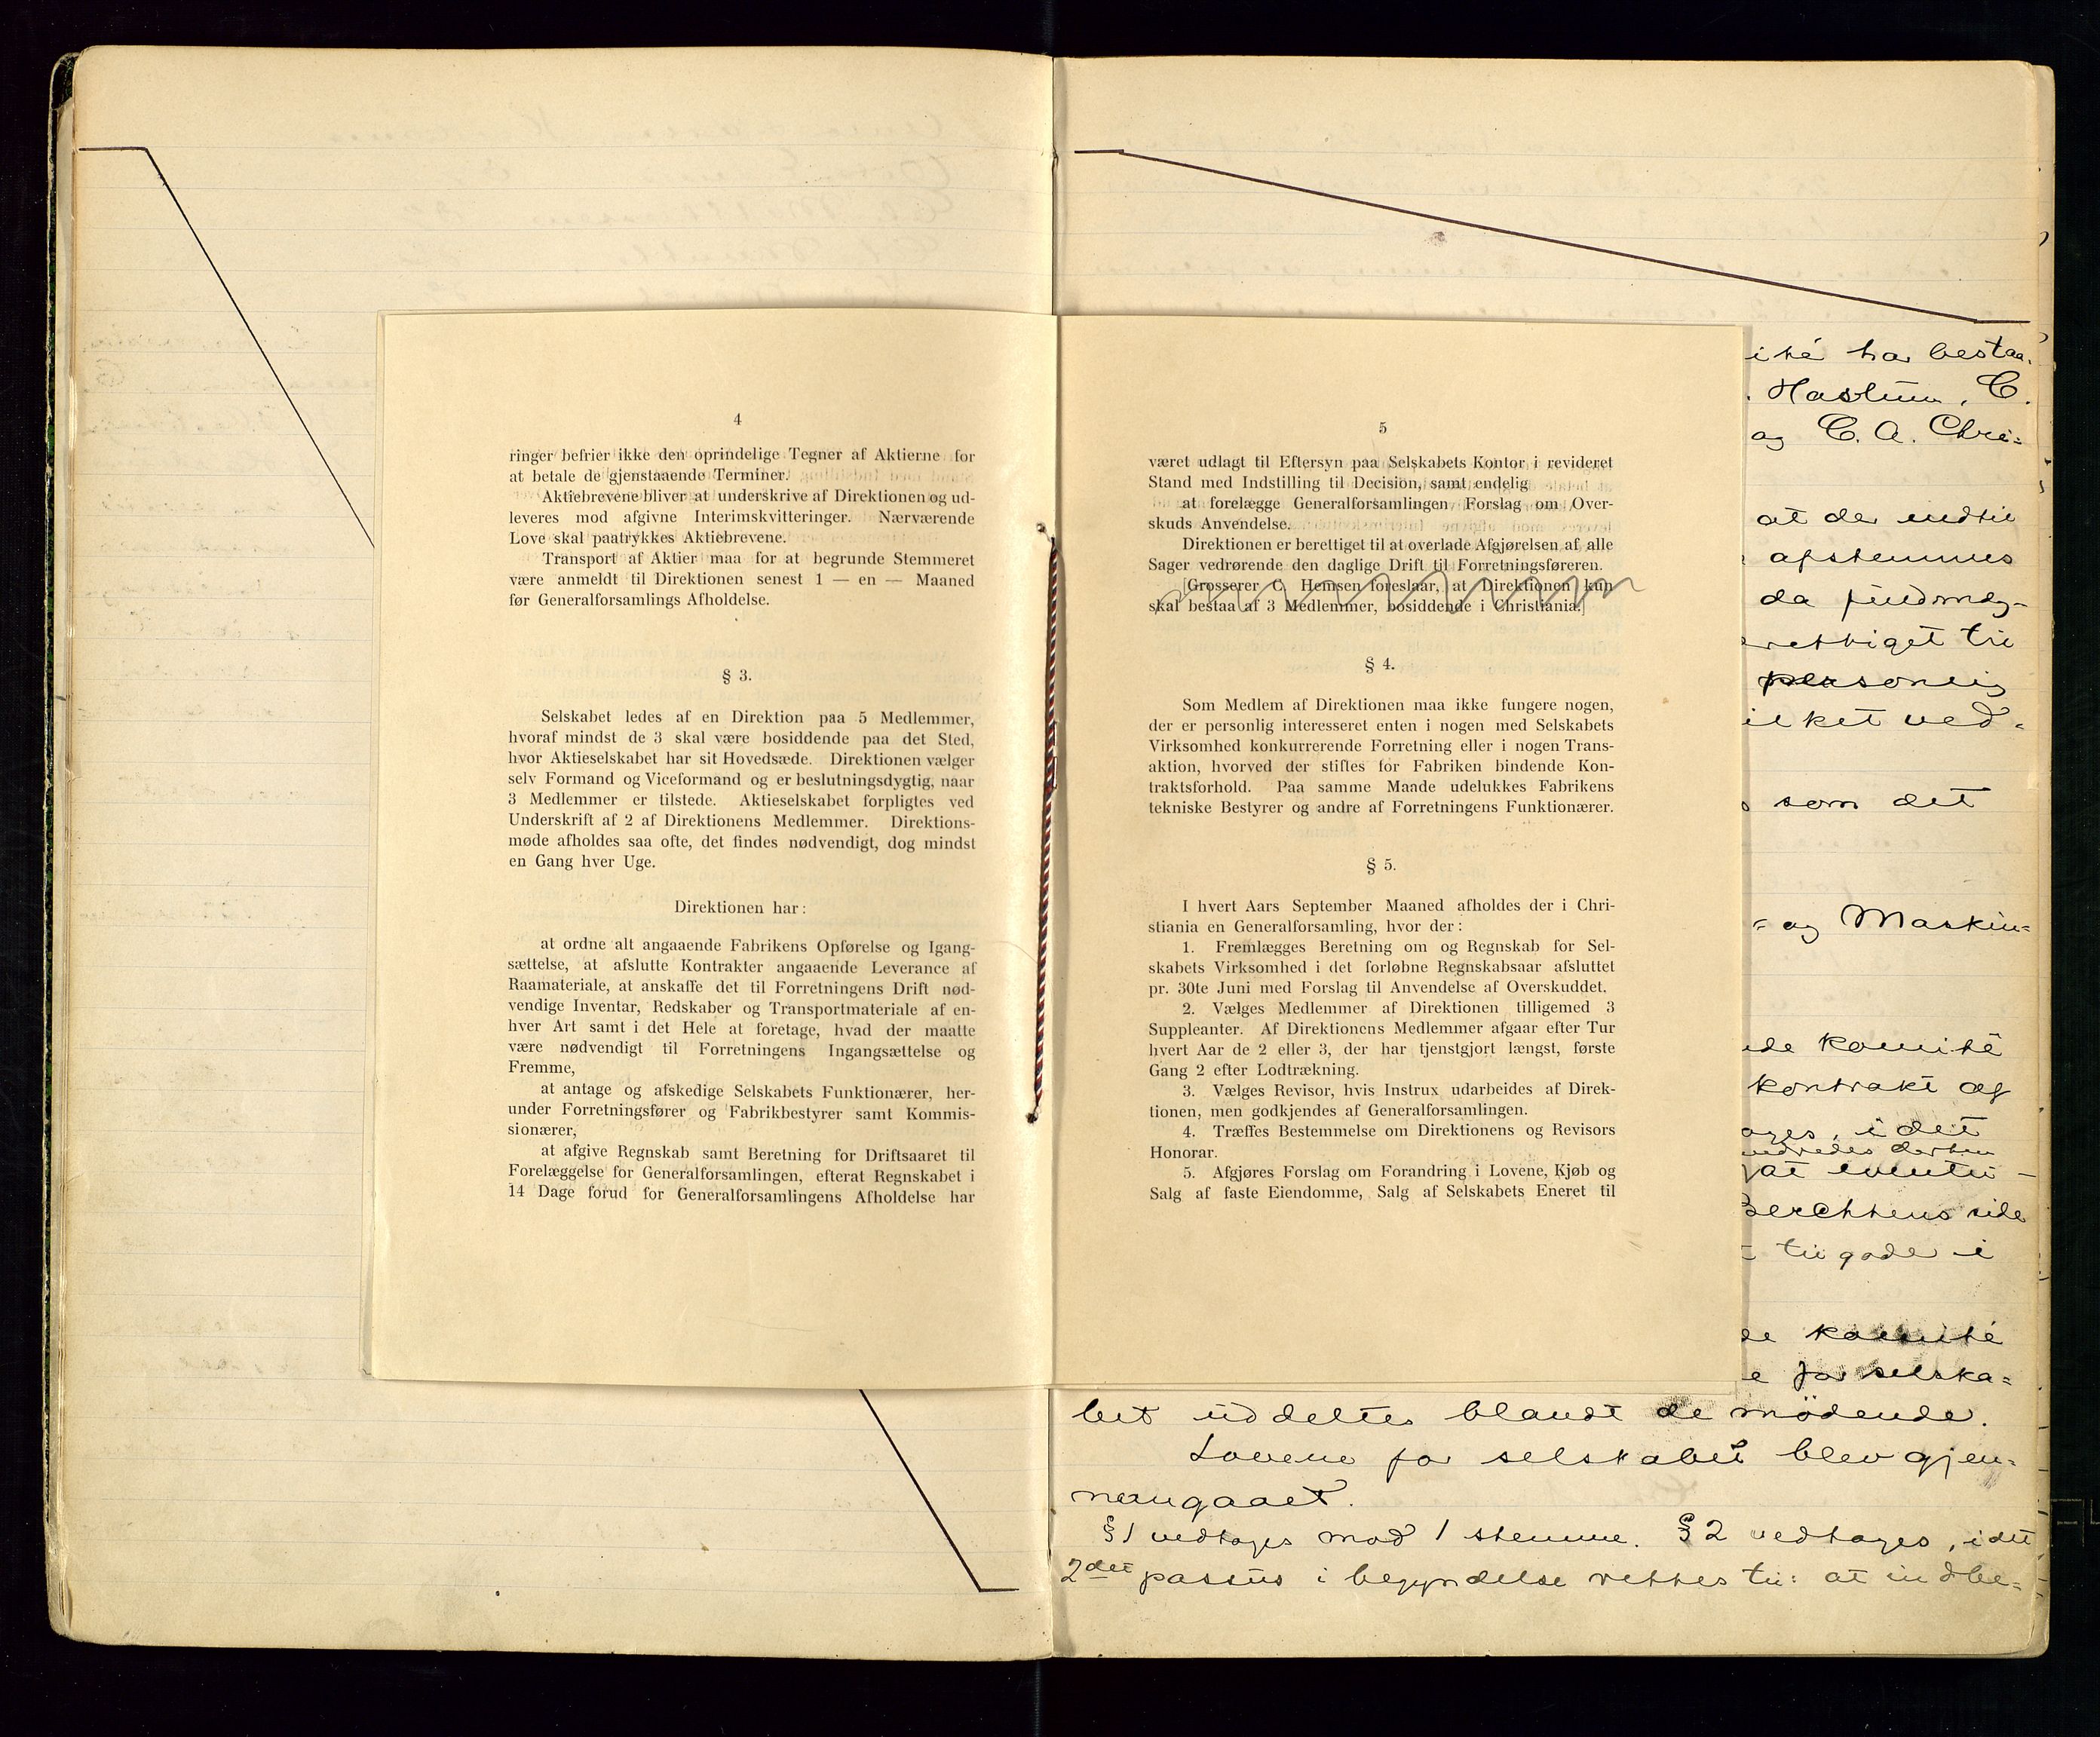 4
ringer befrier ikke den oprindelige Tegner af Aktierne for
at betale de gjenstaaende Terminer.
Aktiebrevene bliver at underskrive af Direktionen og ud-
leveres mod afgivne Interimskvitteringer. Nærværende
Love skal paatrykkes Aktiebrevene.
Transport af Aktier maa for at begrunde Stemmeret
være anmeldt til Direktionen senest 1 — en — Maaned
før Generalforsamlings Afholdelse.
§ 3.
Selskabet ledes af en Direktion paa 5 Medlemmer,
hvoraf mindst de 3 skal være bosiddende paa det Sted,
hvor Aktieselskabet har sit Hovedsæde. Direktionen vælger
selv Formand og Viceformand og er beslutningsdygtig, naar
3 Medlemmer er tilstede. Aktieselskabet forpligtes ved
Underskrift af 2 af Direktionens Medlemmer. Direktions-
møde afholdes saa ofte, det findes nødvendigt, dog mindst
en Gang hver Uge.
Direktionen har:
at ordne alt angaaende Fabrikens Opførelse og Igang-
sættelse, at afslutte Kontrakter angaaende Leverance af
Raamateriale, at anskaffe det til Forretningens Drift nød-
vendige Inventar, Redskaber og Transportmateriale af en-
hver Art samt i det Hele at foretage, hvad der maatte
være nødvendigt til Forretningens Ingangsættelse og
Fremme,
at antage og afskedige Selskabets Funktionærer, her-
under Forretningsfører og Fabrikbestyrer samt Kommis-
sionærer,
at afgive Regnskab samt Beretning for Driftsaaret til
Forelæggelse for Generalforsamlingen, efterat Regnskabet i
14 Dage forud for Generalforsamlingens Afholdelse har
5
været udlagt til Eftersyn paa Selskabets Kontor i revideret
Stand med Indstilling til Decision, samt endelig
at forelægge Generalforsamlingen Forslag om Over-
skuds Anvendelse.
Direktionen er berettiget til at overlade Afgjørelsen af alle
Sager vedrørende den daglige Drift til Forretningsføreren.
[Grosserer C. Hemsen foreslaar, at Direktionen kun
skal bestaa af 3 Medlemmer, bosiddende i Christiania.]
§ 4.
Som Medlem af Direktionen maa ikke fungere nogen,
der er personlig interesseret enten i nogen med Selskabets
Virksomhed konkurrerende Forretning eller i nogen Trans-
aktion, hvorved der stiftes for Fabriken bindende Kon-
traktsforhold. Paa samme Maade udelukkes Fabrikens
tekniske Bestyrer og andre af Forretningens Funktionærer.
§ 5.
I hvert Aars September Maaned afholdes der i Chri-
stiania en Generalforsamling, hvor der:
1. Fremlægges Beretning om og Regnskab for Sel-
skabets Virksomhed i det forløbne Regnskabsaar afsluttet
pr. 30te Juni med Forslag til Anvendelse af Overskuddet.
2. Vælges Medlemmer af Direktionen tilligemed 3
Suppleanter. Af Direktionens Medlemmer afgaar efter Tur
hvert Aar de 2 eller 3, der har tjenstgjort længst, første
Gang 2 efter Lodtrækning.
3. Vælges Revisor, hvis Instrux udarbeides af Direk-
tionen, men godkjendes af Generalforsamlingen.
4. Træffes Bestemmelse om Direktionens og Revisors
Honorar.
5. Afgjøres Forslag om Forandring i Lovene, Kjøb og
Salg af faste Eiendomme, Salg af Selskabets Eneret til
ité har bestaa-
Haslum, C.
og C. A. Chri=
at de indtil
afstemmes
da fuldmæg-
rettiget til
personlig
ilket ved-
som det
= og Maskin=
de komité
kontrakt og
ages, i det
at eventu-
Berchtens side
tilgode i
de komité
e for selska=
bet uddeltes blandt de mödende.
Lovene for selskabet blev gjen-
nemgaaet.
§ 1 vedtages mod 1 stemme. § 2 vedtages, idet
2det passus i begyndelse rettes til: at indbe=